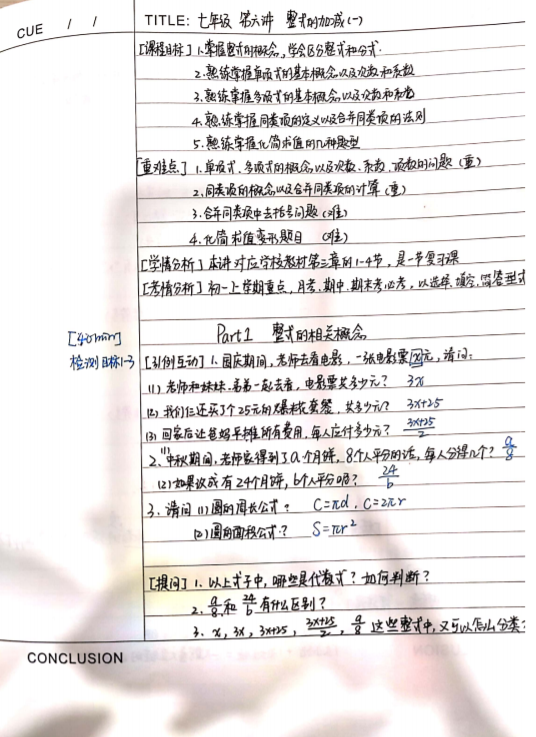 CUE / /
TITLE: 七年级 第六讲 整式的加减(一)
[课程目标] 1.掌握整式的概念,学会区分整式和分式.
2.熟练掌握单项式的基本概念以及次数和系数
3.熟练掌握多项式的基本概念以及次数和系数
4.熟练掌握同类项的定义以及合并同类项的法则
5.熟练掌握化简求值的几种题型
[重难点] 1.单项式、多项式的概念以及次数、系数、项数的问题 (重)
2.同类项的概念以及合并同类项的计算 (重)
3.合并同类项中去括号问题 (难)
4.化简求值变形题目 (难)
[学情分析] 本讲对应学校教材第三章的1-4节,是一节复习课
[考情分析] 初一上学期重点,月考、期中、期末考必考,以选择、填空、简答型式
Part 1 整式的相关概念
[40min]
检测目标1-3
[引例互动] 1.国庆期间,老师去看电影,一张电影票x元,请问:
(1) 老师和妹妹、弟弟一起去看,电影票共多少元? 3x
(2) 我们仨还买了个25元的爆米花套餐,共多少元? 3x+25
(3) 回家后让爸妈平摊所有费用,每人应付多少元? (3x+25)/2
2.(1)中秋期间,老师家得到了a个月饼,8个人平分的话,每人分得几个? a/8
(2)如果改成有24个月饼,b个人平分呢? 24/b
3.请问 (1)圆的周长公式? C=πd, C=2πr
(2)圆的面积公式? S=πr²
[提问] 1.以上式子中,哪些是代数式?如何判断?
2. a/8 和 24/b 有什么区别?
3. x, 3x, 3x+25, (3x+25)/2, a/8 这些整式中,又可以怎么分类?
CONCLUSION